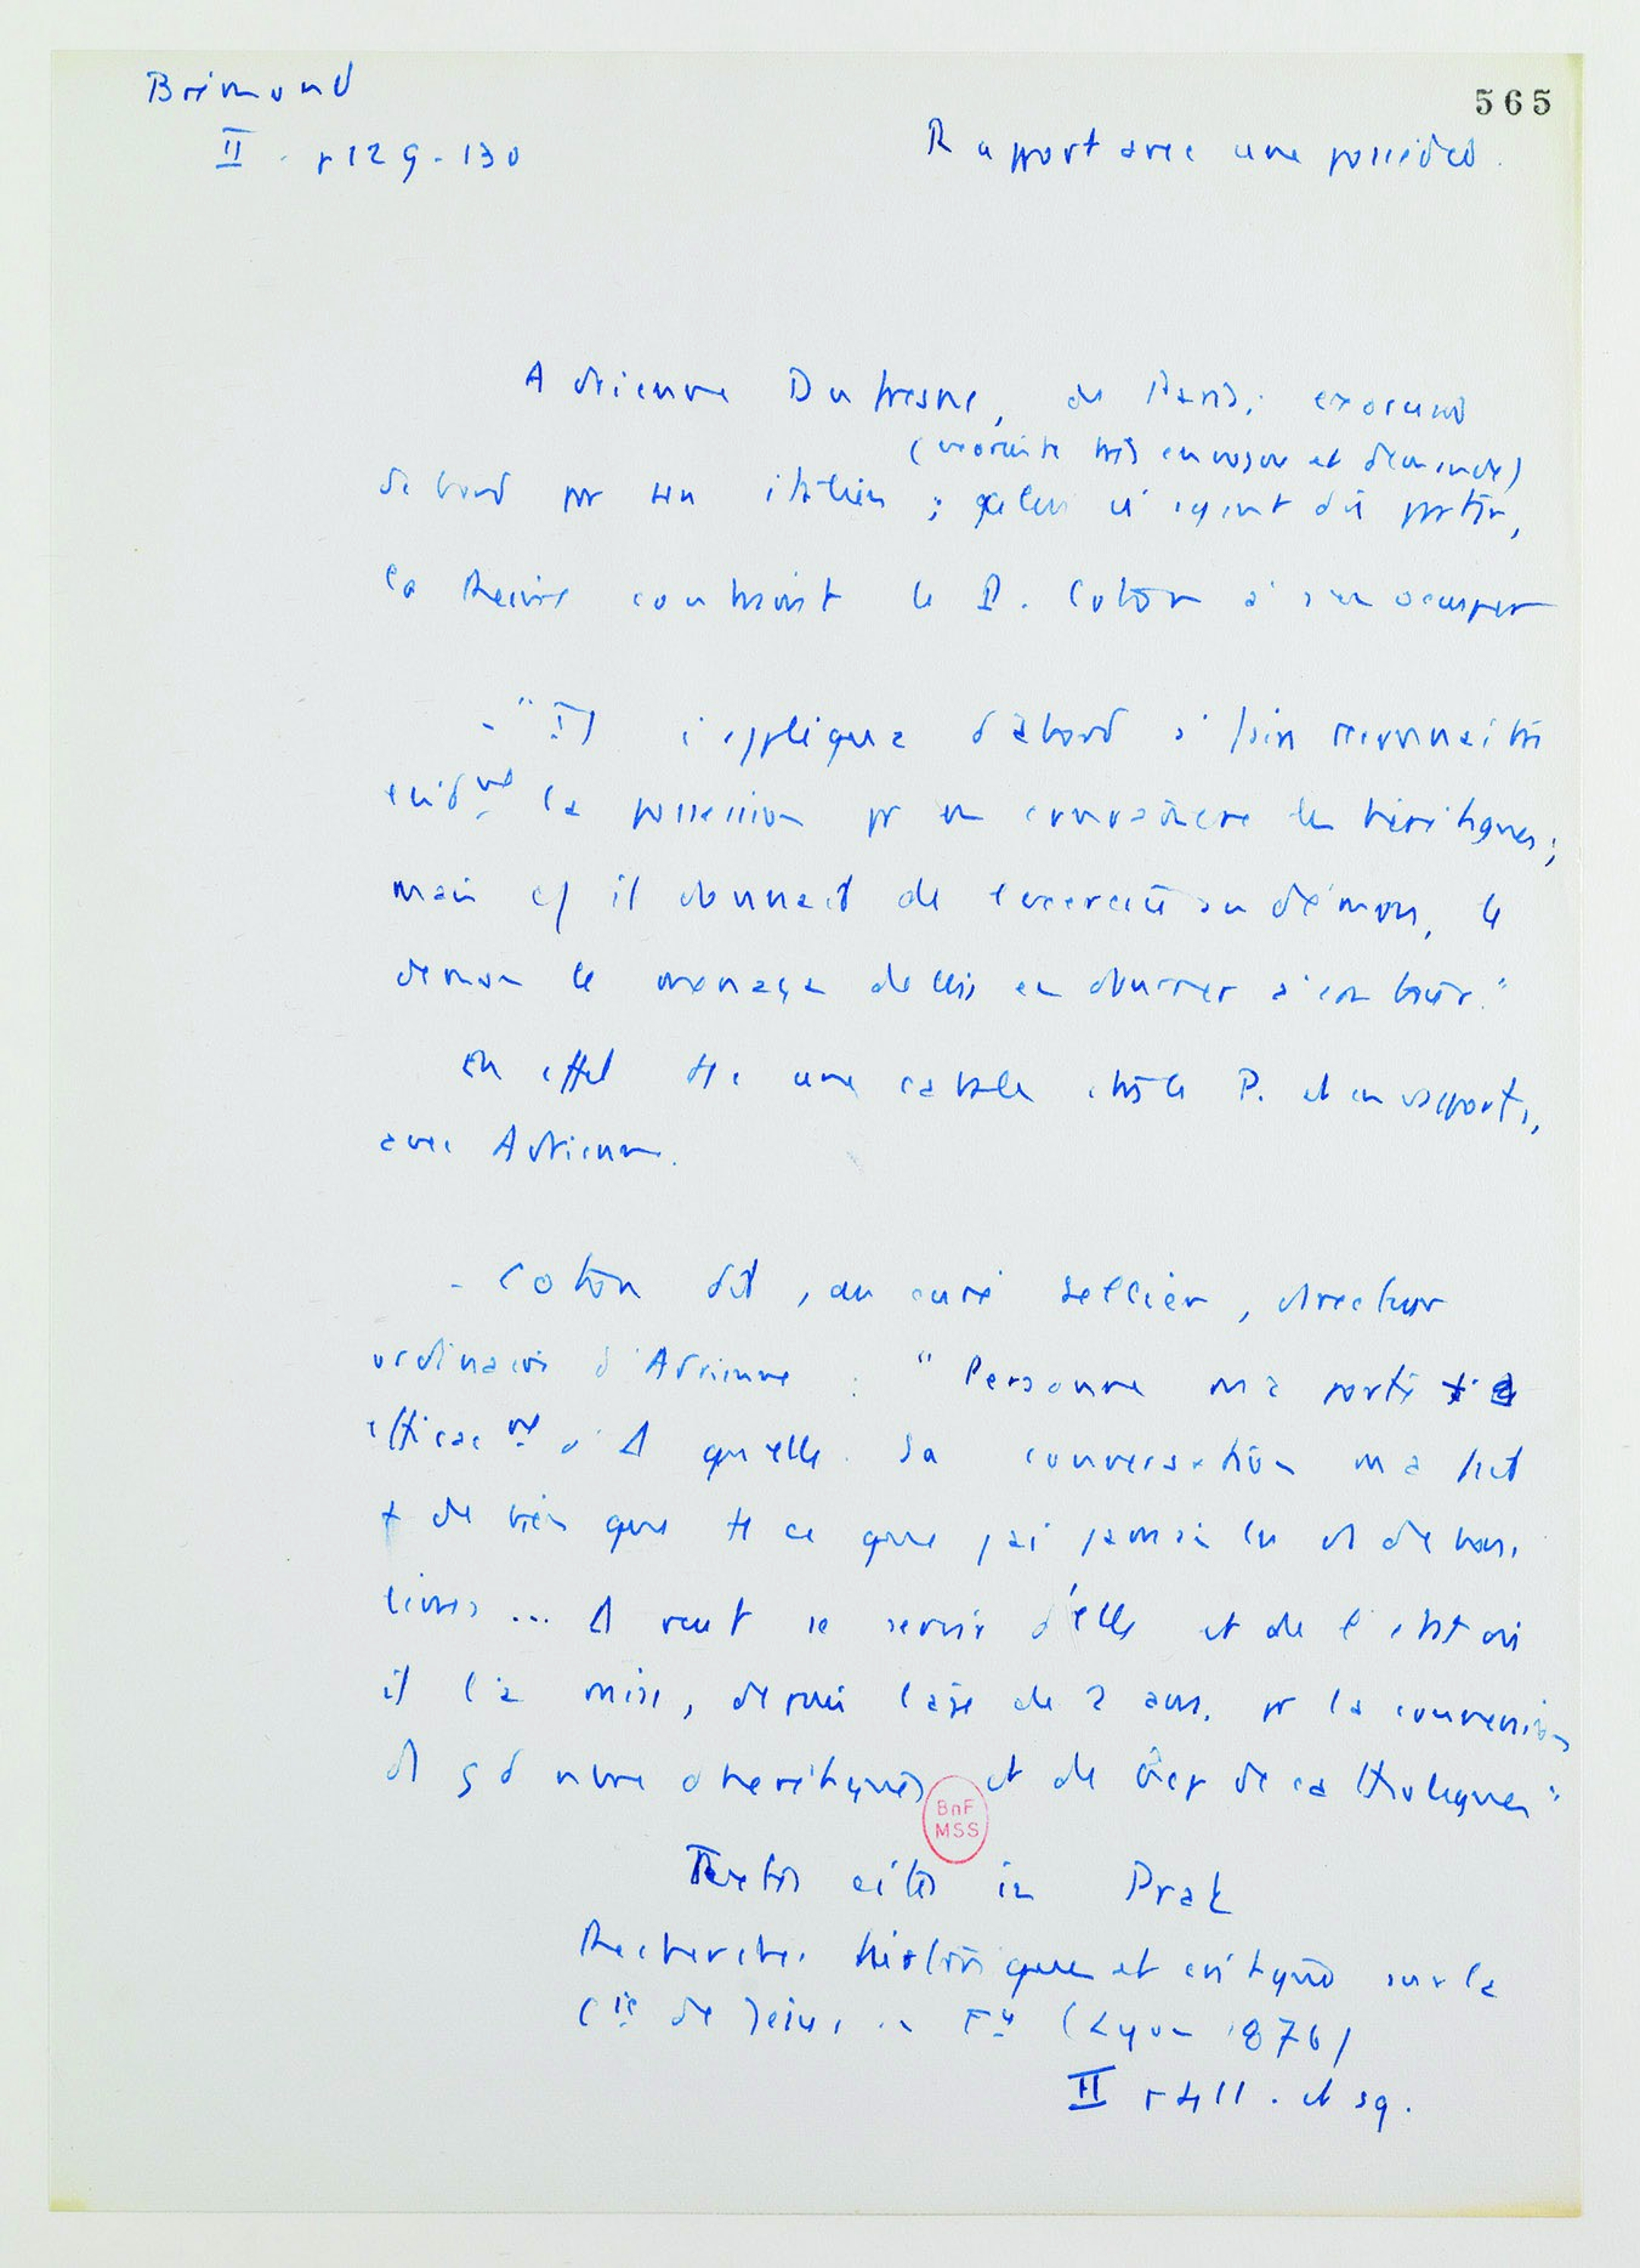 Brémond
565
II. p 129-130
Rapport avec une possédée.
Adrienne Dufresne, de Paris; exorcisée
(ensuite très en vogue et demandé)
d'abord par un italien ; celui ci ayant dû partir,
la Reine contraint le P. Coton à s'en occuper
- "Il s'appliqua d'abord à faire reconnaître
evidmt la possession pr en convaincre les hérétiques;
mais cf il donnait de l'exercice au démon, le
démon le menaça de lui en donner à son tour."
En effet tte une cabale contre le P. et ses rapports,
avec Adrienne.
- Coton dit, au curé Sellier, directeur
ordinaire d'Adrienne : "Personne m'a porté +
efficacmt à Δ qu'elle. Sa conversation m'a fait
+ de bien que tt ce que j'ai jamais lu et de bons
livres... Δ veut se servir d'elle et de l'état où
il l'a mise, depuis l'âge de 2 ans, pr la conversion
d'1 gd nbre d'hérétiques et de bcp de catholiques"
BnF
MSS
Textes cités in Prat
Recherches historiques et critiques sur la
Cie de Jésus en Fce (Lyon 1876)
II p 411. et sq.